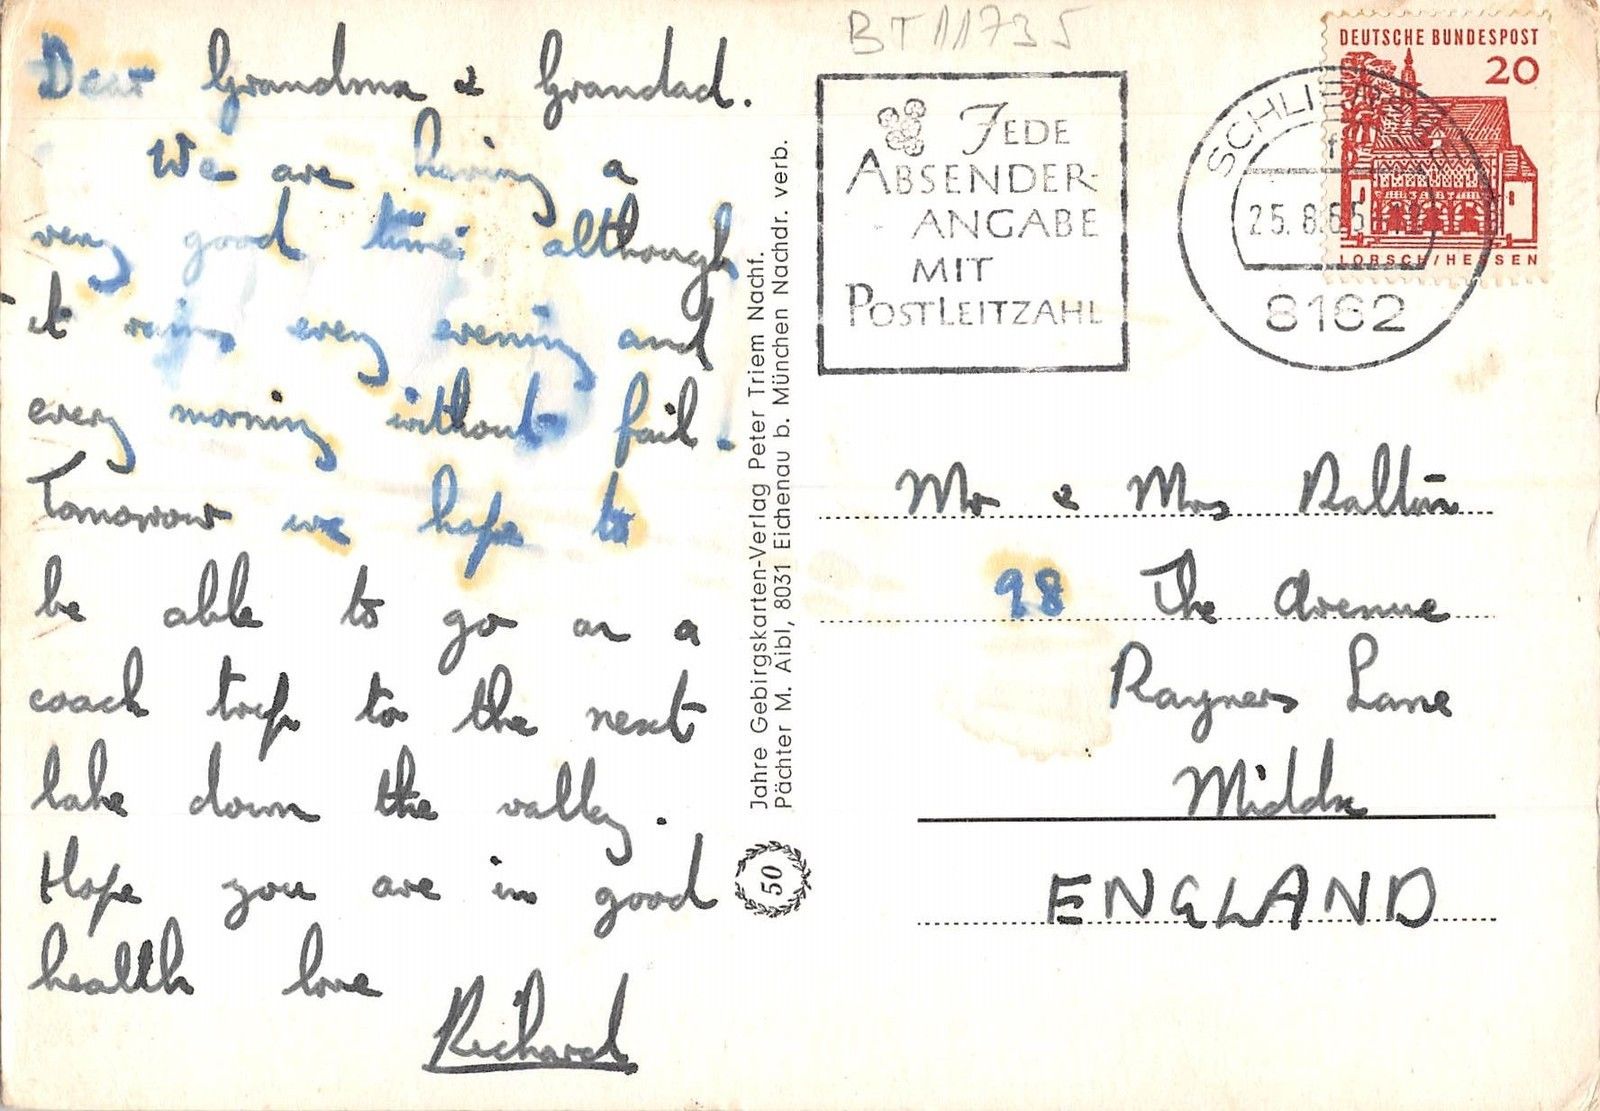 BT11735
Dear Grandma & Grandad.
We are having a
very good time although
it rains every evening and
every morning without fail.
Tomorrow we hope to
be able to go on a
coach trip to the next
lake down the valley.
Hope you are in good
health love
Richard
Jahre Gebirgskarten-Verlag Peter Triem Nachf.
Pächter M. Aibl, 8031 Eichenau b. München Nachdr. verb.
50
JEDE
ABSENDER-
ANGABE
MIT
POSTLEITZAHL
DEUTSCHE BUNDESPOST
20
LORSCH/HESSEN
25.8.65
8162
Mr & Mrs
98 The Avenue
Rayners Lane
Middx
ENGLAND